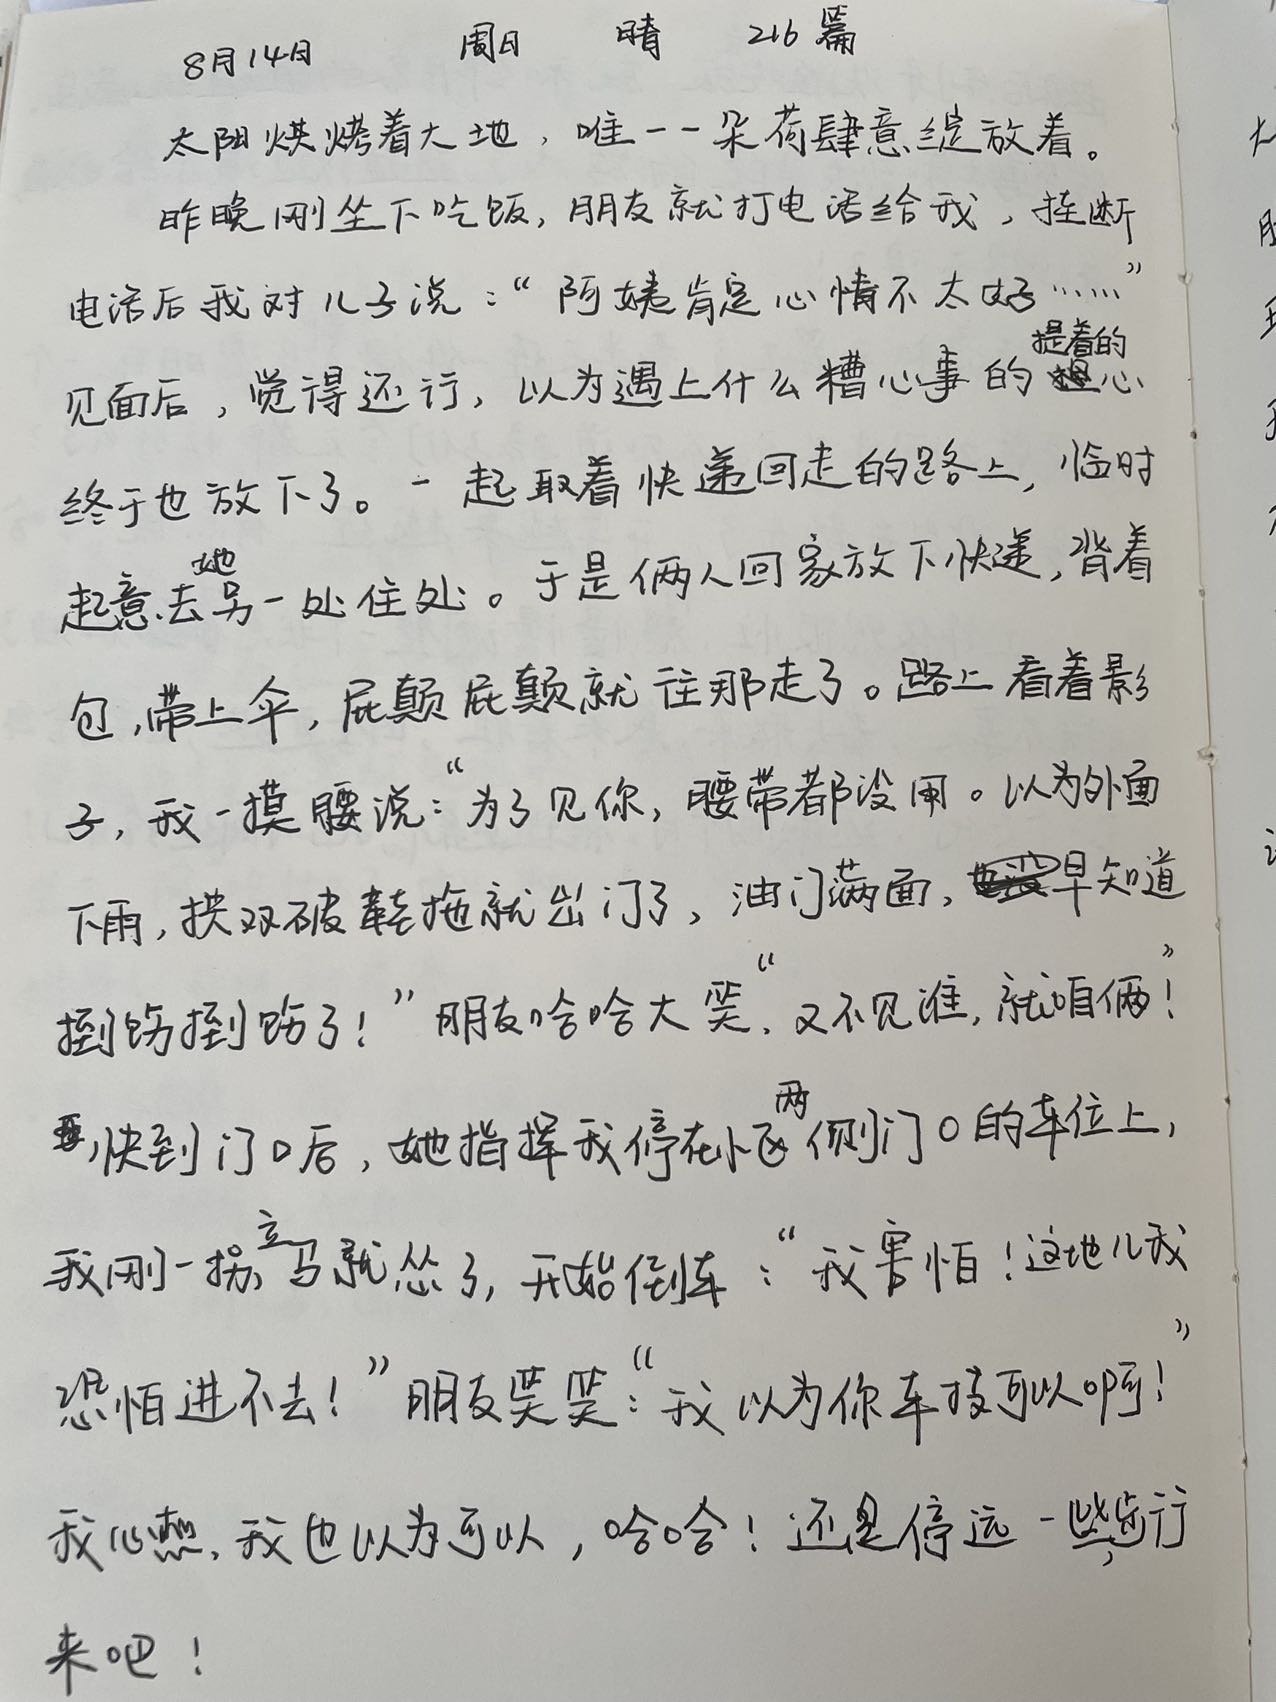 8月14日 周日 晴 216篇
太阳烘烤着大地，唯一一朵荷肆意绽放着。
昨晚刚坐下吃饭，朋友就打电话给我，挂断
电话后我对儿子说：“阿姨肯定心情不太好……”
见面后，觉得还行，以为遇上什么糟心事的提着的心
终于也放下了。一起取着快递回走的路上，临时
起意去她另一处住处。于是俩人回家放下快递，背着
包，带上伞，屁颠屁颠就往那走了。路上看着影
子，我一摸腰说：“为了见你，腰带都没用。以为外面
下雨，挟双破鞋拖就出门了，油门满面，早知道
捯饬捯饬了！”朋友哈哈大笑，“又不见谁，就咱俩！”
快到门口后，她指挥我停在小区两侧门口的车位上，
我刚一拐，立马就怂了，开始倒车：“我害怕！这地儿我
恐怕进不去！”朋友笑笑：“我以为你车技可以啊！”
我心想，我也以为可以，哈哈！还是停远一些，步行
来吧！